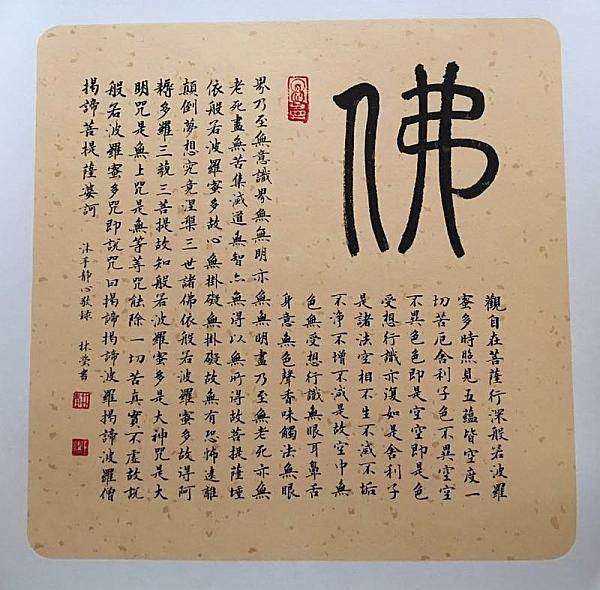 佛
觀自在菩薩行深般若波羅
蜜多時照見五蘊皆空度一
切苦厄舍利子色不異空空
不異色色即是空空即是色
受想行識亦復如是舍利子
是諸法空相不生不滅不垢
不淨不增不減是故空中無
色無受想行識無眼耳鼻舌
身意無色聲香味觸法無眼
界乃至無意識界無無明亦無無明盡乃至無老死亦無
老死盡無苦集滅道無智亦無得以無所得故菩提薩埵
依般若波羅蜜多故心無掛礙無掛礙故無有恐怖遠離
顛倒夢想究竟涅槃三世諸佛依般若波羅蜜多故得阿
耨多羅三藐三菩提故知般若波羅蜜多是大神咒是大
明咒是無上咒是無等等咒能除一切苦真實不虛故說
般若波羅蜜多咒即說咒曰揭諦揭諦波羅揭諦波羅僧
揭諦菩提薩婆訶 沐手靜心敬 林 書